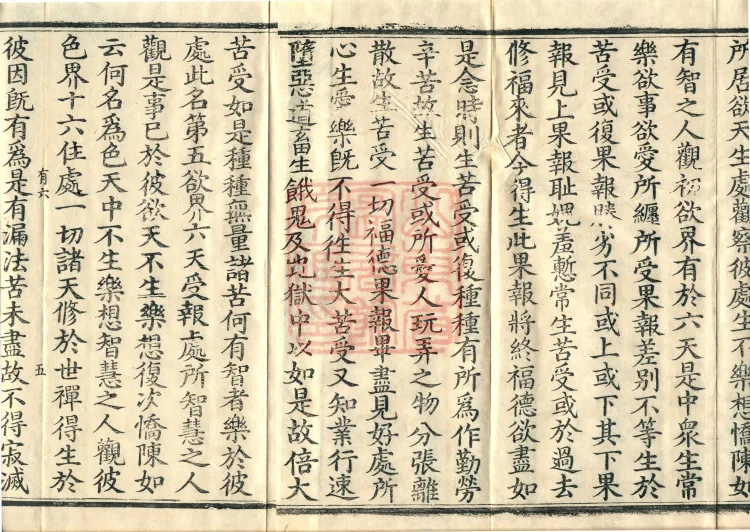 所居欲天生處觀察彼處生不樂想憍陳如
有智之人觀初欲界有於六天是中衆生常
樂欲事欲愛所纏所受果報差別不等生於
苦受或復果報勝劣不同或上或下其下果
報見上果報耻媿羞慙常生苦受或於過去
修福來者今得生此果報將終福德欲盡如
是念時則生苦受或復種種有所爲作勤勞
辛苦故生苦受或所愛人玩弄之物分張離
散故生苦受一切福德果報畢盡見好處所
心生愛樂旣不得往生大苦受又知業行速
墮惡道畜生餓鬼及地獄中以如是故倍大
苦受如是種種無量諸苦何有智者樂於彼
處此名第五欲界六天受報處所智慧之人
觀是事已於彼欲天不生樂想復次憍陳如
云何名爲色天中不生樂想智慧之人觀彼
色界十六住處一切諸天修於世禪得生於
有六 五
彼因旣有爲是有漏法苦未盡故不得寂滅